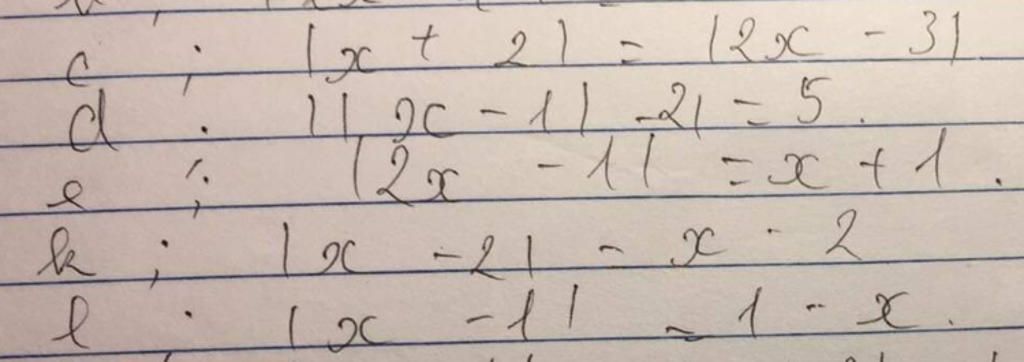 c ; |x + 2| = |2x - 3|
d . ||x - 1| - 2| = 5.
e ; |2x - 1| = x + 1.
k ; |x - 2| = x - 2
l . |x - 1| = 1 - x.